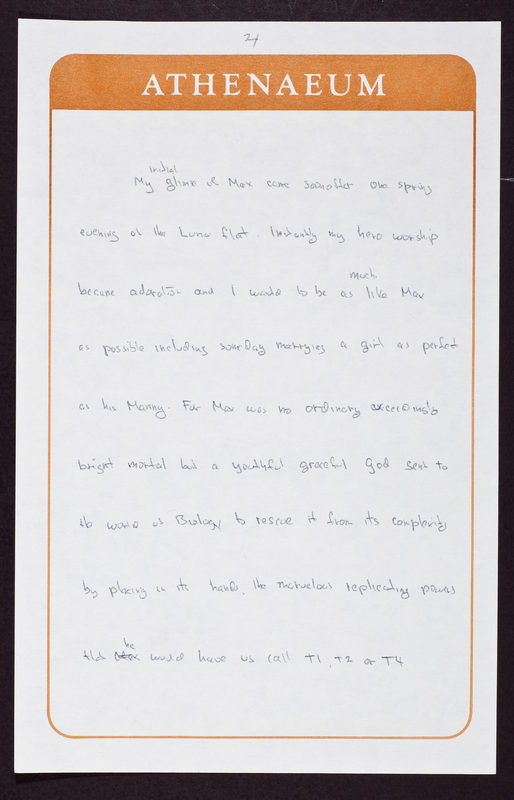 24
ATHENAEUM
initial
My glimse of Max came soon after one spring
evening at the Luria flat. Instantly my hero worship
much
became adoration and I wanted to be as like Max
as possible including someday marrying a girl as perfect
as his Manny. For Max was no ordinary exceedingly
bright mortal but a youthful graceful God sent to
the world of Biology to rescue it from its complexity
by placing in its hands, the marvelous replicating powers
he
that would have us call T1, T2 or T4